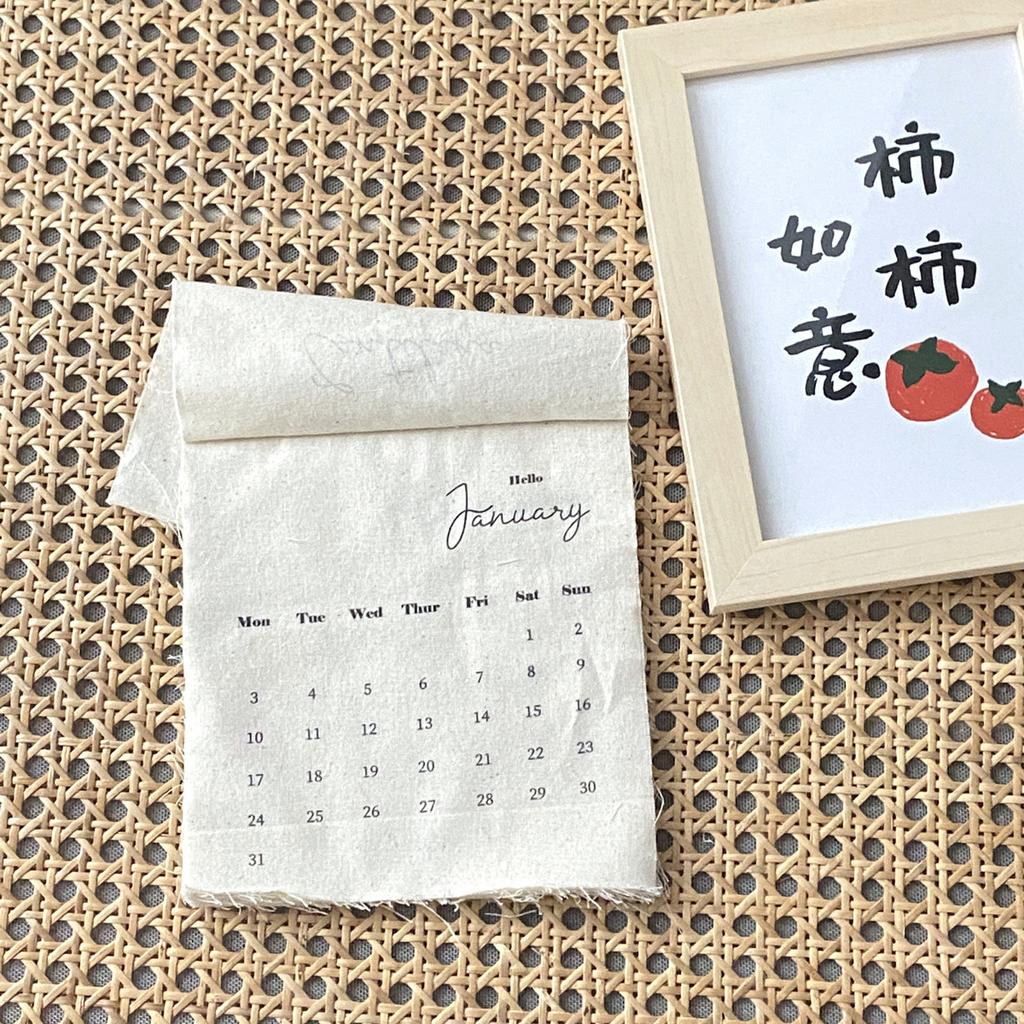 Hello
January
Mon Tue Wed Thur Fri Sat Sun
1 2
3 4 5 6 7 8 9
10 11 12 13 14 15 16
17 18 19 20 21 22 23
24 25 26 27 28 29 30
31
柿柿
如意